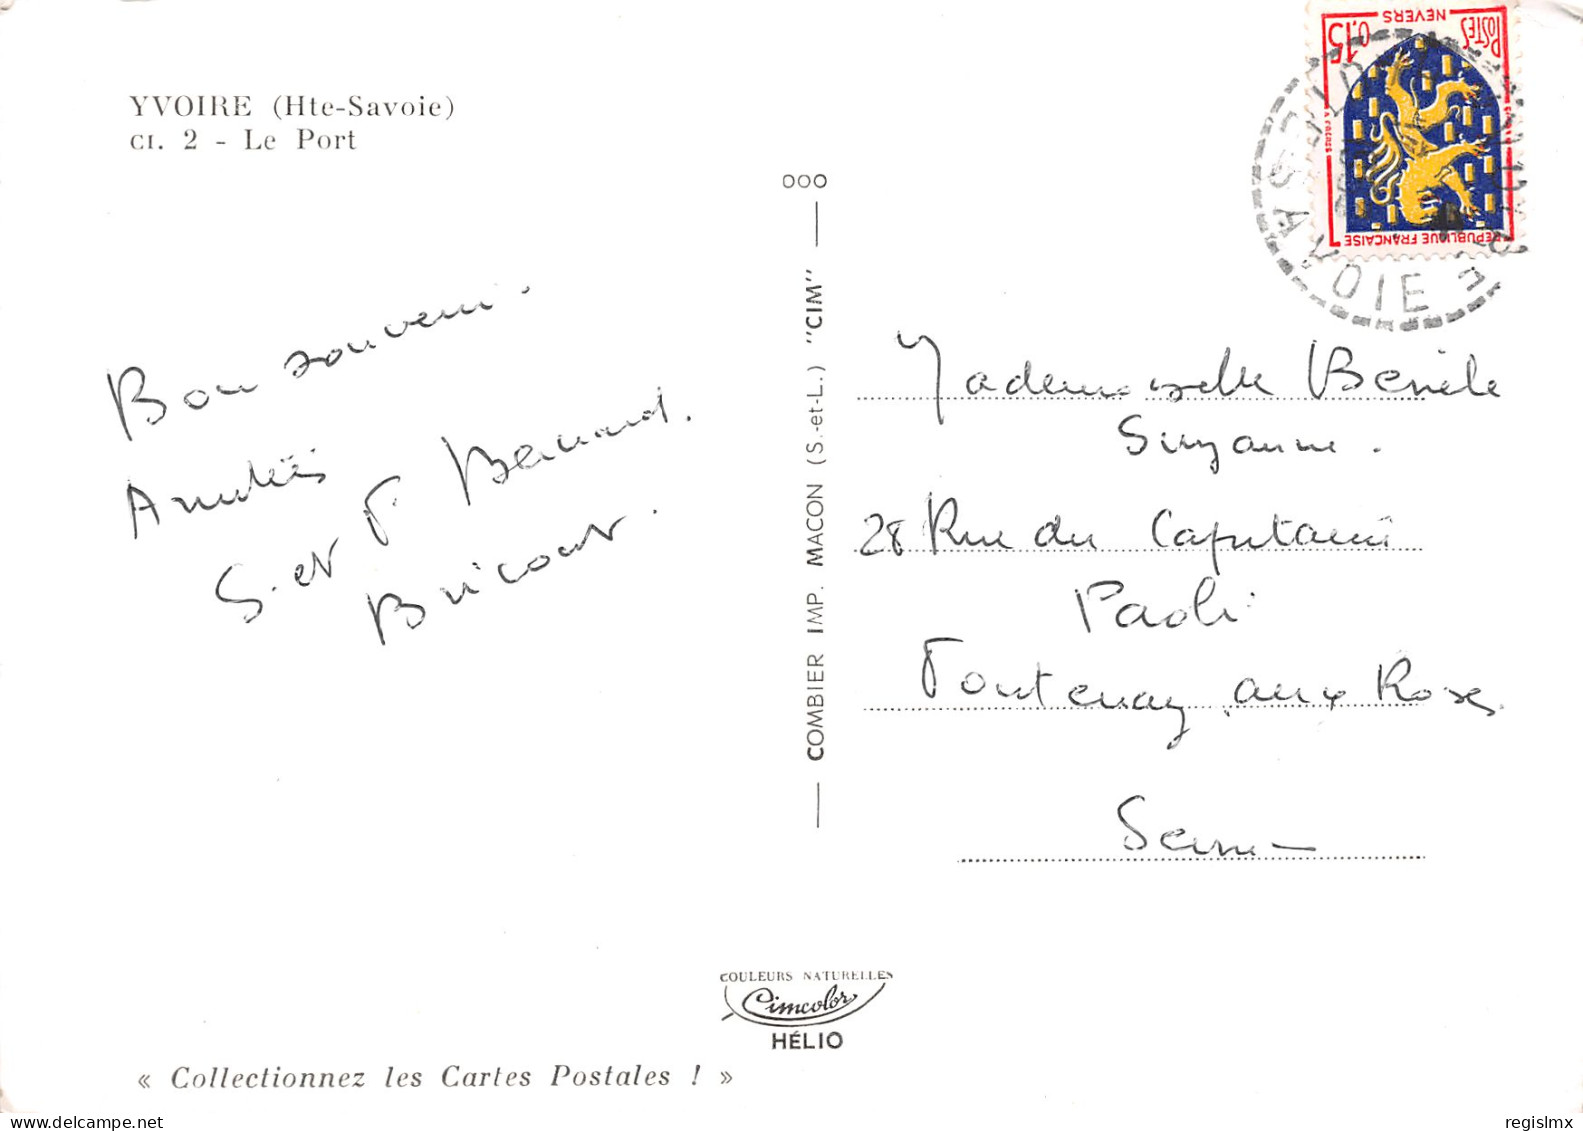 YVOIRE (Hte-Savoie)
CI. 2 - Le Port
Bon souvenir.
Amitiés
S. et F. Bernard.
Bricout.
000
COMBIER IMP. MACON (S.-et-L.) "CIM"
POSTES
0,15
NEVERS
REPUBLIQUE FRANÇAISE
SAVOIE
Mademoiselle
Suzanne.
28 Rue du Capitaine
Paoli
Fontenay aux Roses
Seine
COULEURS NATURELLES
Cimcolor
HÉLIO
« Collectionnez les Cartes Postales ! »
regislmx